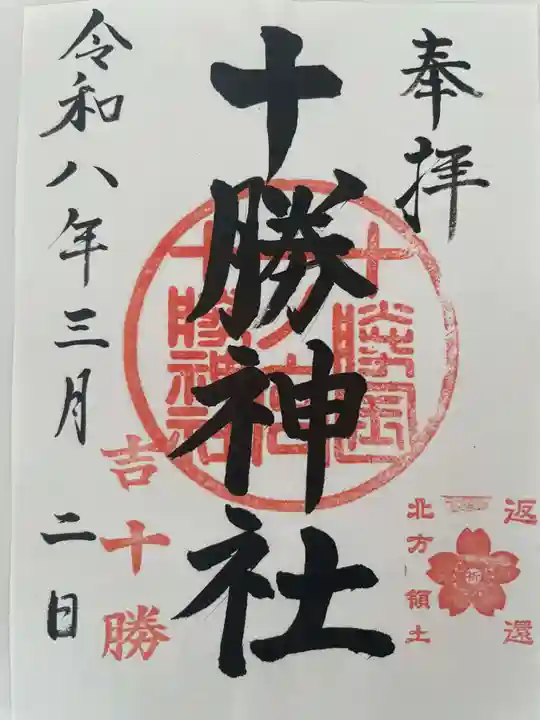 奉拝
返還
祈
北方領土
十勝神社
十勝国
十勝神社
吉十勝
令和八年三月二日